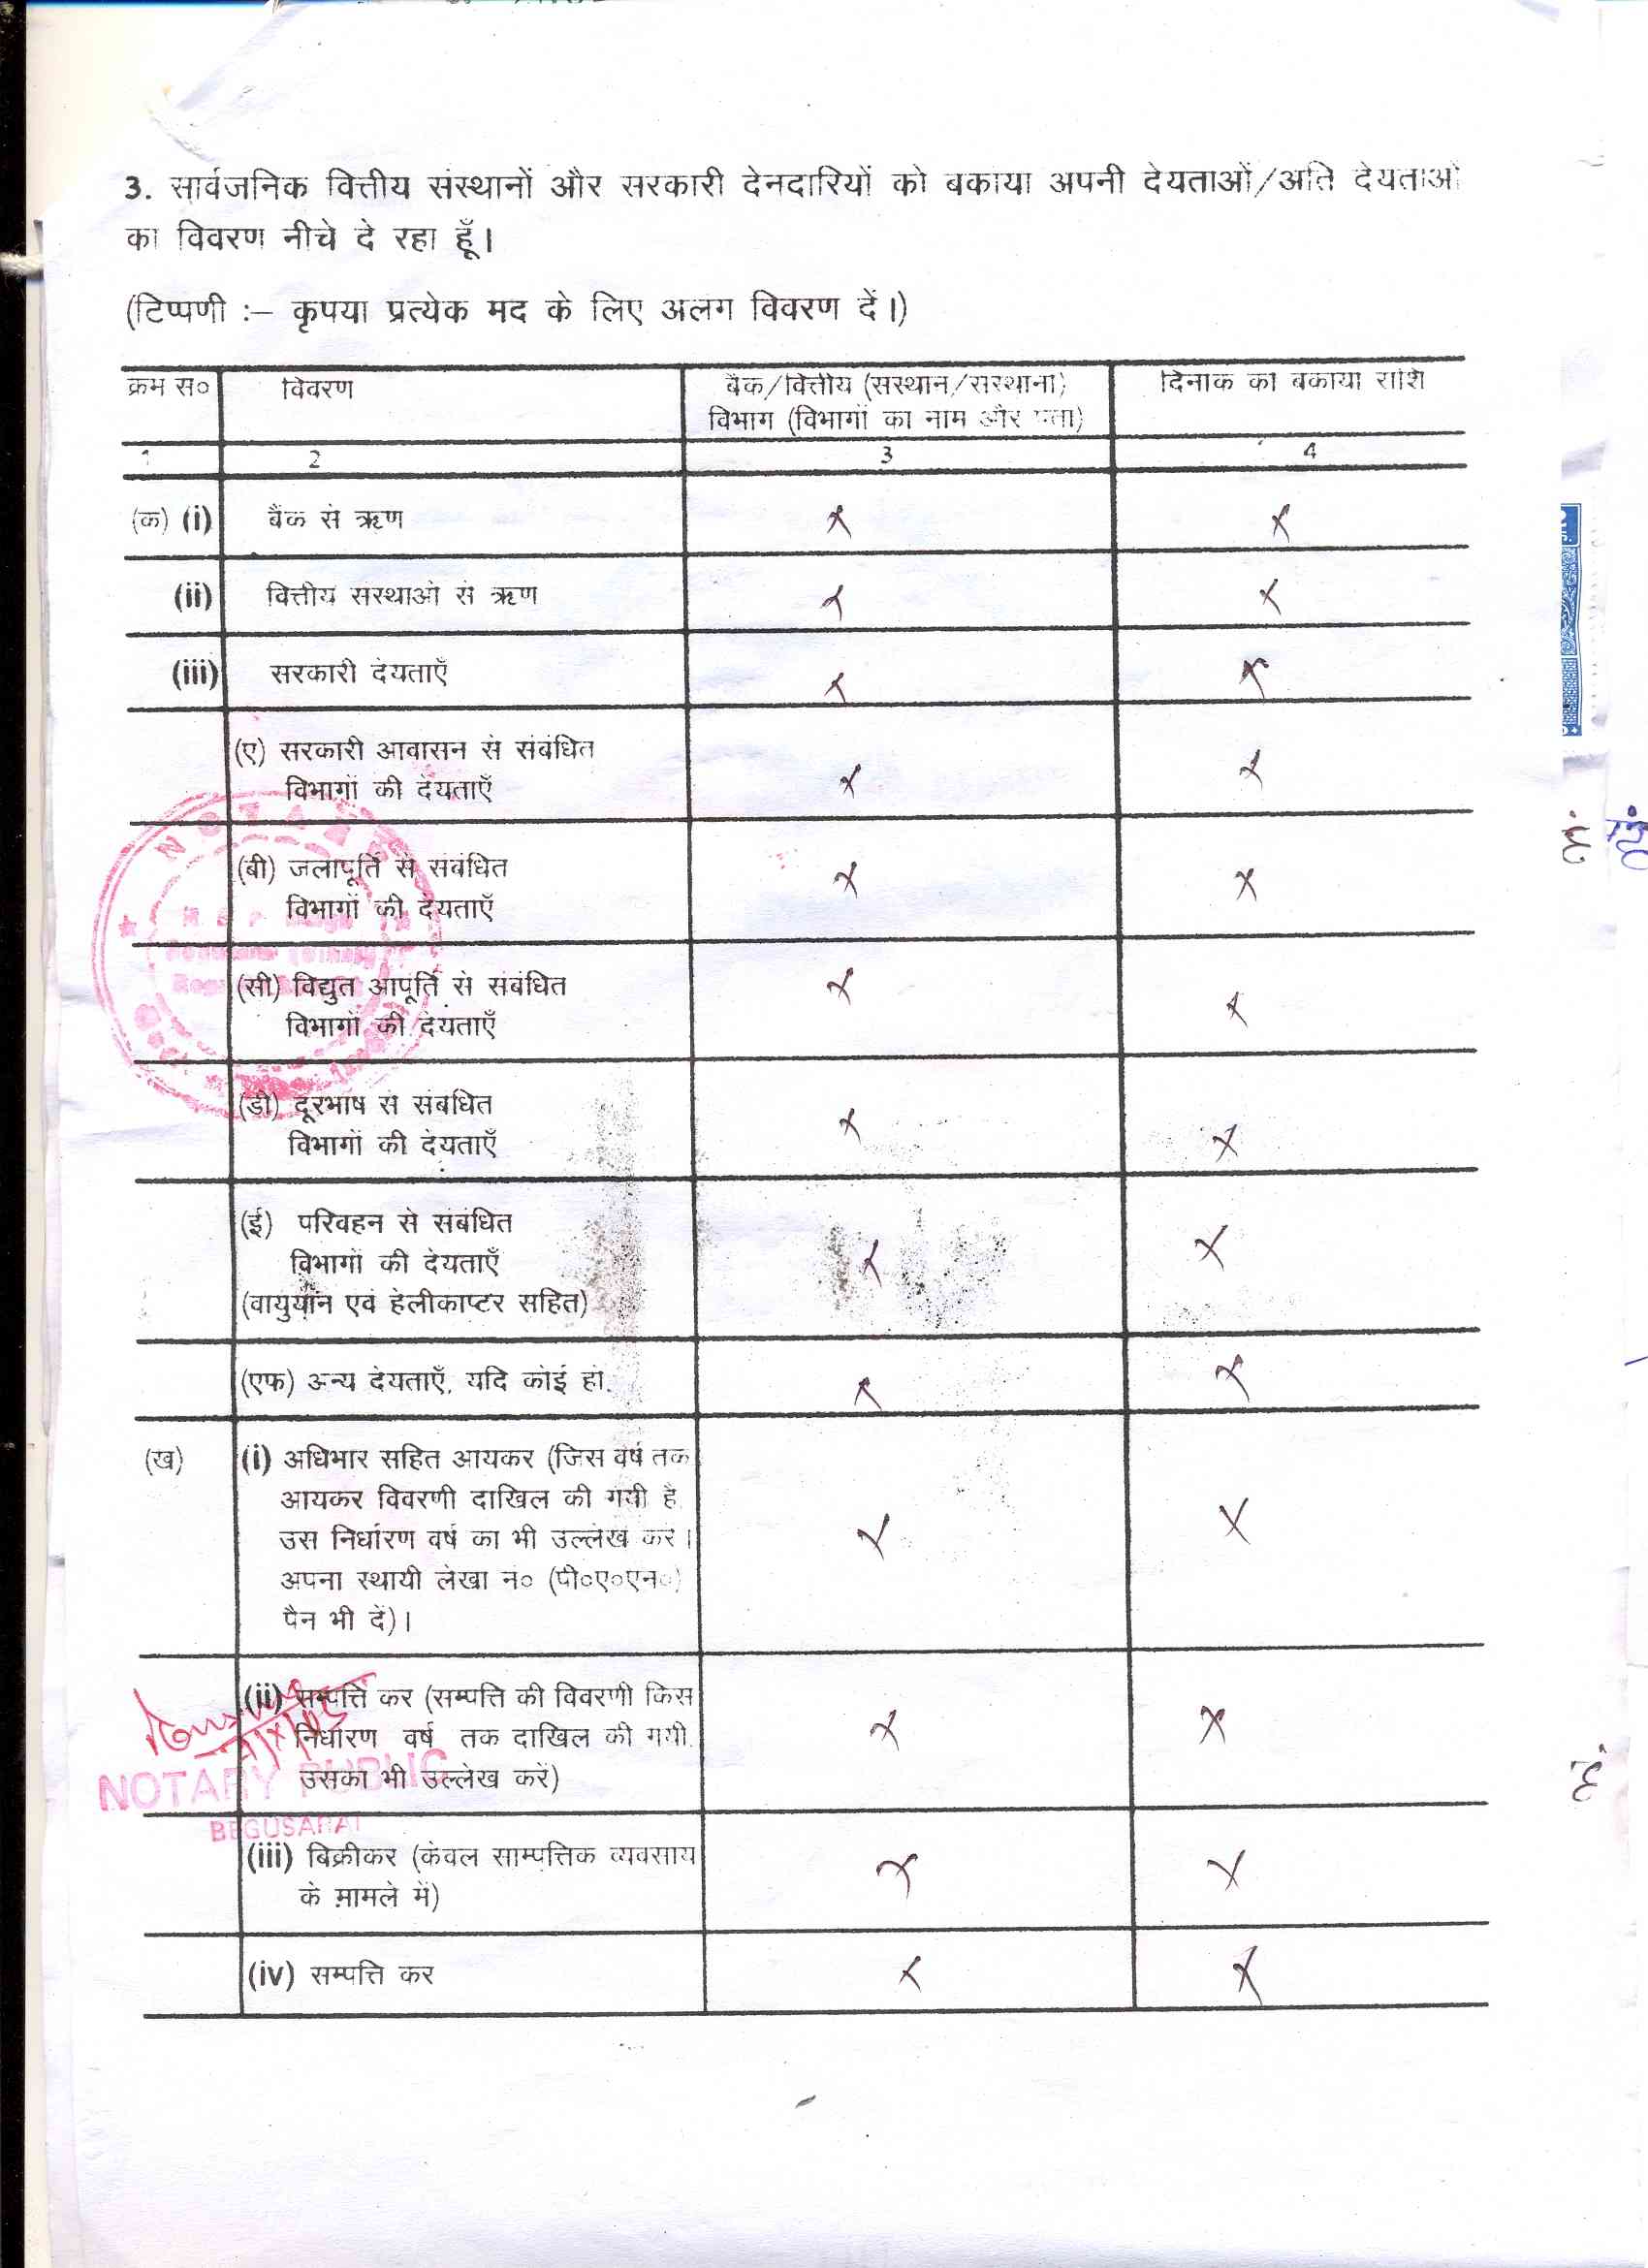 3. सार्वजनिक वित्तीय संस्थानों और सरकारी देनदारियों को बकाया अपनी देयताओं/अति देयताओं
का विवरण नीचे दे रहा हूँ।
(टिप्पणी :– कृपया प्रत्येक मद के लिए अलग विवरण दें।)
क्रम स० विवरण बैंक/वित्तीय (संस्थान/संस्थानों) दिनांक को बकाया राशि
विभाग (विभागों का नाम और पता)
1 2 3 4
(क) (i) बैंक से ऋण x x
(ii) वित्तीय संस्थाओं से ऋण x x
(iii) सरकारी देयताएँ x x
(ए) सरकारी आवासन से संबंधित
विभागों की देयताएँ x x
(बी) जलापूर्ति से संबंधित
विभागों की देयताएँ x x
(सी) विद्युत आपूर्ति से संबंधित
विभागों की देयताएँ x x
(डी) दूरभाष से संबंधित
विभागों की देयताएँ x x
(ई) परिवहन से संबंधित
विभागों की देयताएँ x x
(वायुयान एवं हेलीकाप्टर सहित)
(एफ) अन्य देयताएँ, यदि कोई हो. x x
(ख) (i) अधिभार सहित आयकर (जिस वर्ष तक
आयकर विवरणी दाखिल की गयी है
उस निर्धारण वर्ष का भी उल्लेख करें। x x
अपना स्थायी लेखा नं० (पी०ए०एन०)
पैन भी दें)।
(ii) सम्पत्ति कर (सम्पत्ति की विवरणी किस
निर्धारण वर्ष तक दाखिल की गयी. x x
उसका भी उल्लेख करें)
NOTARY PUBLIC
BEGUSARAI
(iii) बिक्रीकर (केवल साम्पत्तिक व्यवसाय
के मामले में) x x
(iv) सम्पत्ति कर x x